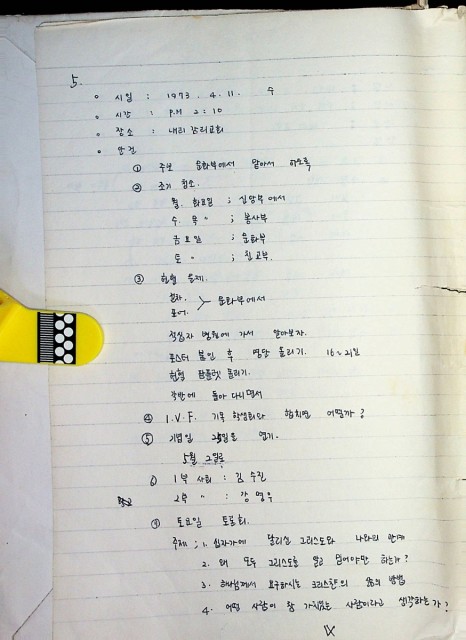 5.
○ 시일 : 1973. 4. 11. 수
○ 시간 : P.M 2:10
○ 장소 : 내리 감리교회
○ 안건
① 주보 문화부에서 맡아서 하도록
② 조기 청소.
월. 화요일 ; 신앙부에서
수. 목 〃 ; 봉사부
금요일 ; 문화부
토 〃 ; 친교부.
③ 헌혈 문제.
문화부에서
적십자 병원에 가서 알아보자.
포스터 붙인 후 명단 올리기. 16~21일
헌혈 팜플렛 돌리기.
각반에 돌아 다니면서
④ I.V.F. 기독 학생회와 합치면 어떨까?
⑤ 기념일 25일은 연기.
5월 2일로
⑥ 1부 사회 : 김수진
2부 〃 : 강영우
토요일 토론회.
주제 ; 1. 십자가에 달리신 그리스도와 나와의 관계
2. 왜 모두 그리스도를 알고 믿어야만 하는가?
3. 하나님께서 요구하시는 크리스챤의 생활 방법
4. 어떤 사람이 참 가치있는 사람이라고 생각하는가?